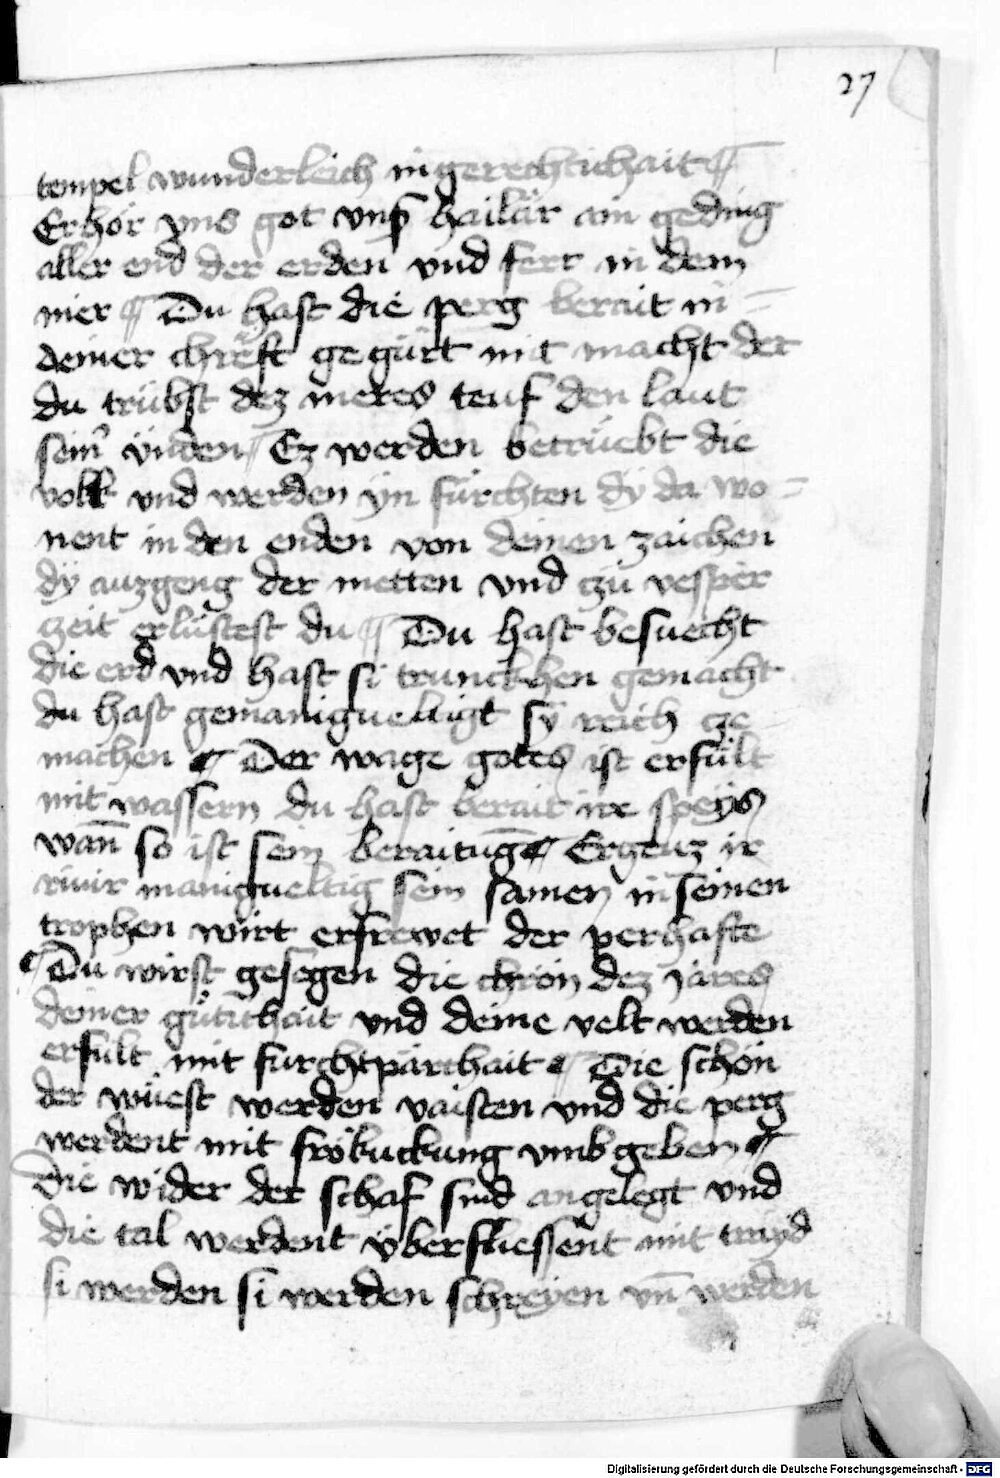 27
tempel wunderleich in gerechtichait ¶
Erhör vns got vnser hailär ain geding
aller end der erden vnd ferr in dem
mer ¶ Du hast die perg berait in =
deiner chreft gegürt mit macht der
du trübst dez meres teuf den laut
seinˀ ünden ¶ Ez werden betrüebt die
volk vnd werden yn fürchten dy da wo =
nent in den enden von deinen zaichen
dÿ auzgeng der metten vnd czu vesper
czeit erlüstest du ¶ Du hast besuecht
die erd vnd hast si trunckhen gemacht
du hast gemanigueltigt sÿ reich cze =
machen ¶ Der wage gotes ist erfült
mit wassern du hast berait ire speys
wan̄ so ist sein beraitūg ¶ Ergeuz ir
riuir manigueltig sein samen in seinen
trophen wirt erfrewet der perhafte
¶ Du wirst gesegen die chrön dez iares
deiner gütichait vnd deine velt werden
erfult mit furchtpärchait ¶ Die schön
der wüest werden vaisten vnd die perg
werdent mit frölukung vmbgeben ¶
Die wider der schaf sind angelegt vnd
die tal werdent überfliessent mit trayd
si werden si werden schreyen vn̄ werden
Digitalisierung gefördert durch die Deutsche Forschungsgemeinschaft - DFG